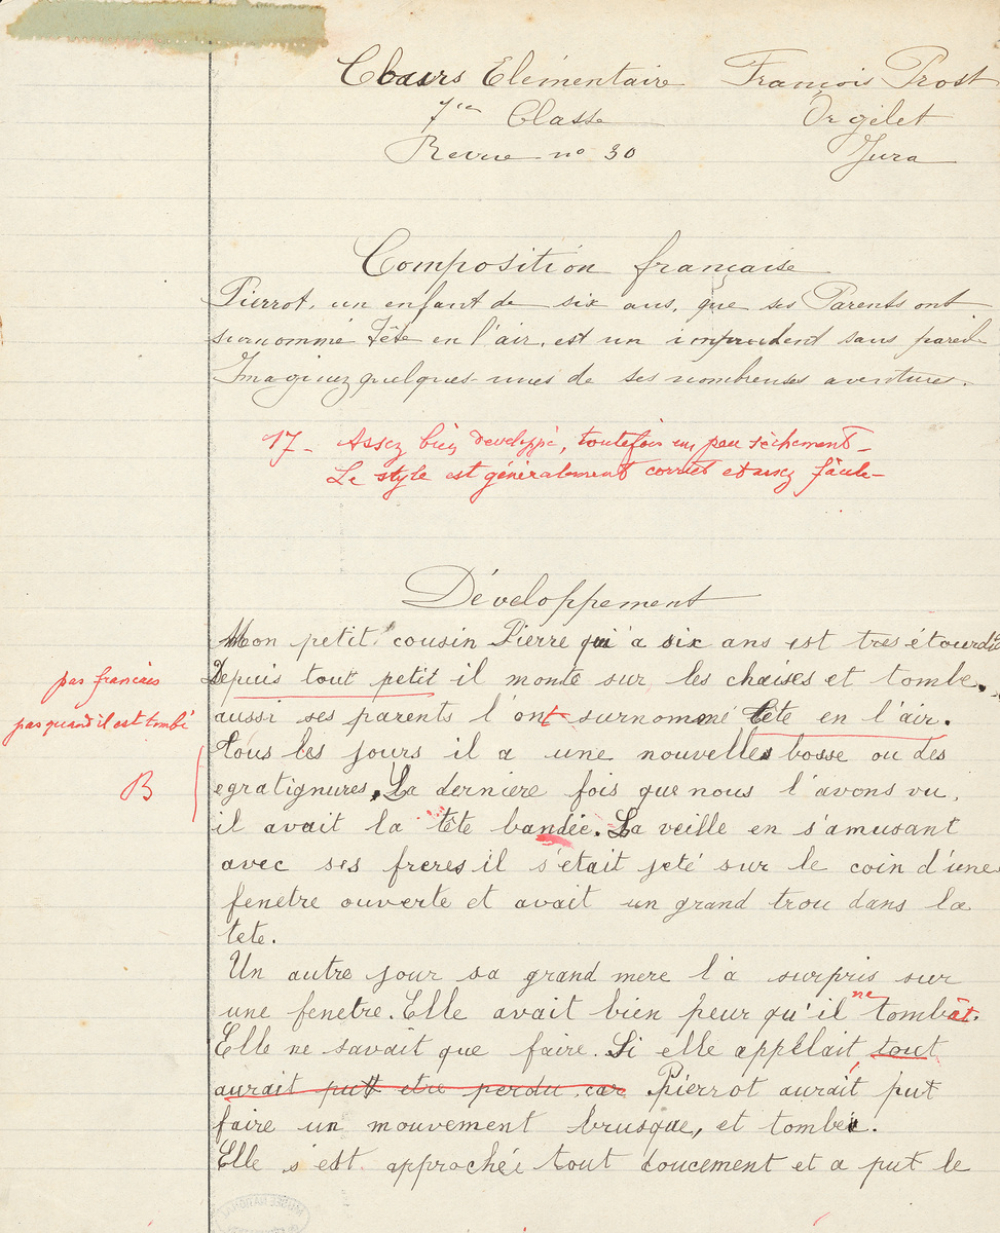 Cours Elémentaire François Prost
1re Classe Orgelet
Revue no 30 Jura
Composition française
Pierrot, un enfant de six ans, que ses Parents ont
surnommé Tête en l'air, est un imprudent sans pareil
Imaginez quelques-unes de ses nombreuses aventures.
17 - Assez bien développé, toutefois un peu sèchement -
Le style est généralement correct et assez facile -
Développement
Mon petit cousin Pierre qui a six ans est tres étourdi
Depuis tout petit il monte sur les chaises et tombe.
pas francais
aussi ses parents l'ont surnommé tête en l'air.
pas quand il est tombé
tous les jours il a une nouvelles bosse ou des
B
egratignures, La derniere fois que nous l'avons vu,
il avait la tête bandée. La veille en s'amusant
avec ses freres il s'etait jeté sur le coin d'une
fenetre ouverte et avait un grand trou dans la
tete.
Un autre jour sa grand mere l'a surpris sur
une fenetre. Elle avait bien peur qu'il ne tombât.
Elle ne savait que faire. Si elle appelait tout
aurait put etre perdu car Pierrot aurait put
faire un mouvement brusque, et tomber.
Elle s'est approchée tout doucement et a put le